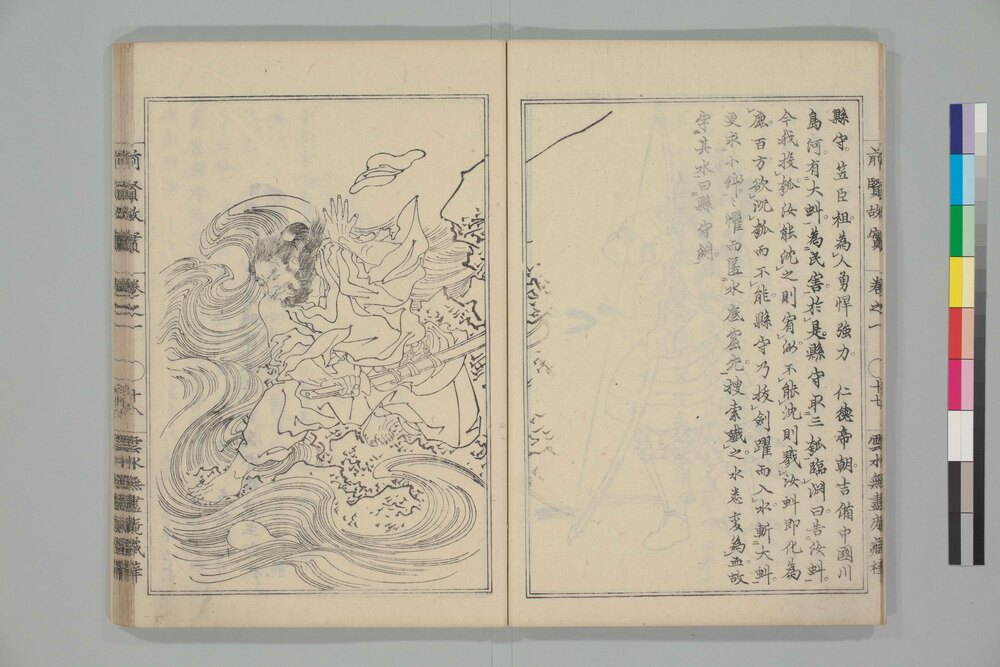 縣守。笠臣祖。為人勇悍強力。 仁德帝朝。吉備中國川
島河有大虯。為民害。於是縣守取三瓠臨淵曰。告汝虯。
今我投瓠。汝能沈之則宥汝。不能沈則戮汝。虯即化為
鹿。百方欲沈瓠而不能。縣守乃拔劍躍而入水。斬大虯。
更求小虯。懼而匿水底窟穴。搜索殲之。水悉變為血。故
字其水曰縣守淵。
前賢故實 卷之一 〇十七 雲水無盡庵藏
前賢故實 卷之一 〇十八 雲水無盡庵藏